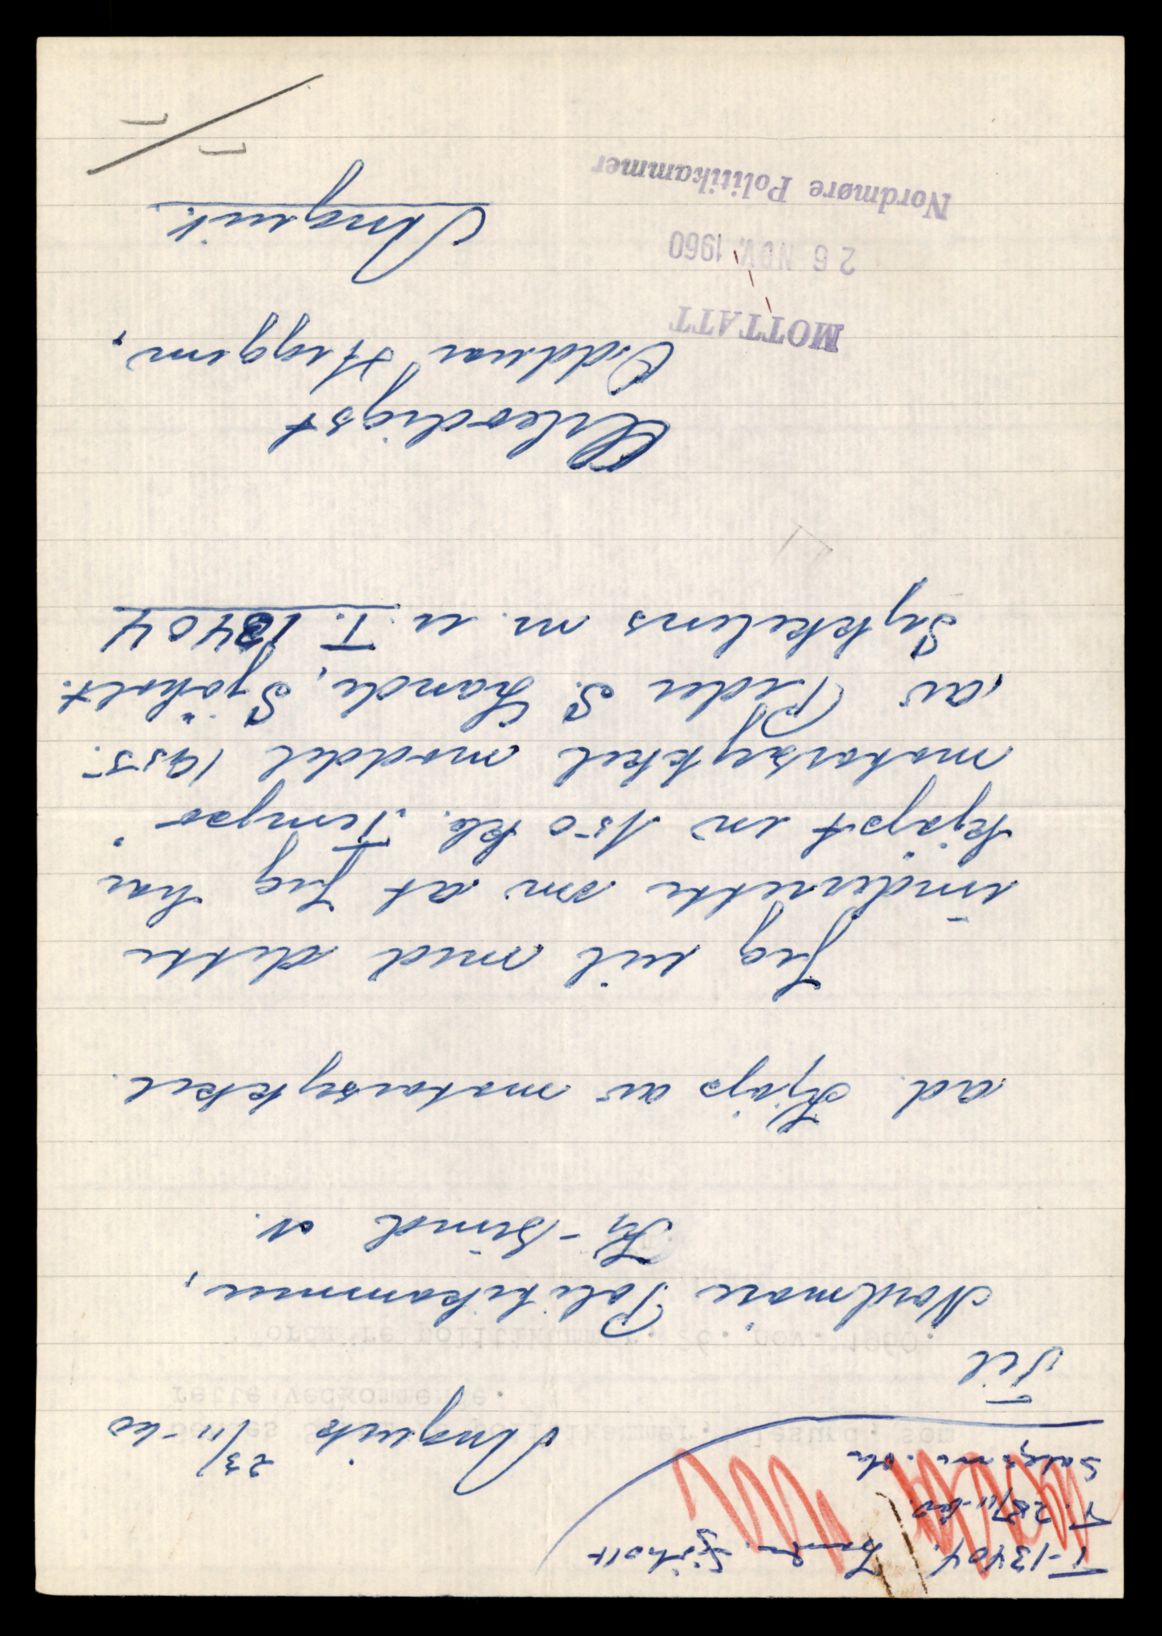 T-13404. Lande. Sjøholt
T. 28/11-60
Salgsm. ok
Angvik 23/11-60
Til
Nordmøre Politikammer,
Kr-sund N.
ad. Kjøp av motorsykkel.
Jeg vil med dette
underrette om at jeg har
kjøpt en 150 kb. Tempo
motorsykkel moddel 1955.
av Peder S. Lande, Sjøholt.
Sykkelens m. n T. 13404
Ærbødigst
Oddvar Heggem,
Angvik.
MOTTATT
26 NOV. 1960
Nordmøre Politikammer